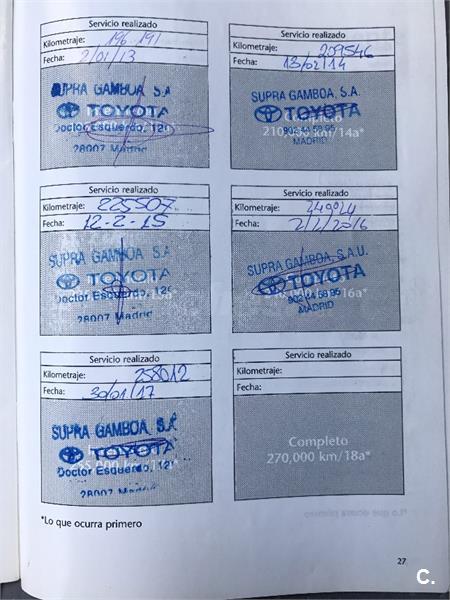 Servicio realizado
Kilometraje: 196.191
Fecha: 2/01/13
SUPRA GAMBOA, S.A
TOYOTA
Doctor Esquerdo, 126
28007 Madrid
Servicio realizado
Kilometraje: 209546
Fecha: 13/02/14
SUPRA GAMBOA, S.A.
TOYOTA
Completo
210,000 km/14a*
902 44 58 95
MADRID
Servicio realizado
Kilometraje: 225507
Fecha: 12-2-15
SUPRA GAMBOA, S.A
TOYOTA
Doctor Esquerdo, 126
28007 Madrid
Servicio realizado
Kilometraje: 249024
Fecha: 2/2/2016
SUPRA GAMBOA, S.A.U.
TOYOTA
902 44 58 95
MADRID
Servicio realizado
Kilometraje: 258012
Fecha: 30/01/17
SUPRA GAMBOA, S.A
TOYOTA
Doctor Esquerdo, 126
28007 Madrid
Servicio realizado
Kilometraje:
Fecha:
Completo
270,000 km/18a*
*Lo que ocurra primero
27
C.